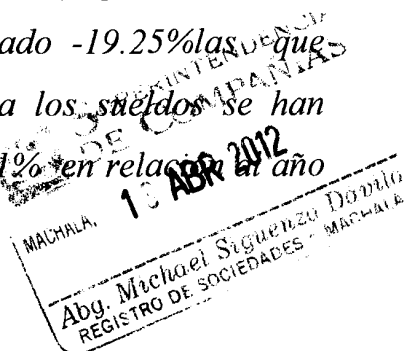 ado -19.25%las que
a los sueldos se han
1% en relación al año
SUPERINTENDENCIA
DE COMPAÑIAS
ABR 2012
MACHALA,
Abg. Michael Siguenza Davila
REGISTRO DE SOCIEDADES - MACHALA